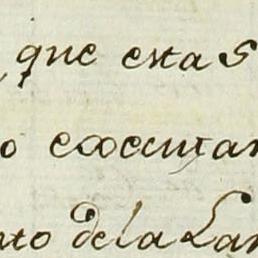 que esta S
o executar
nto de la Lar